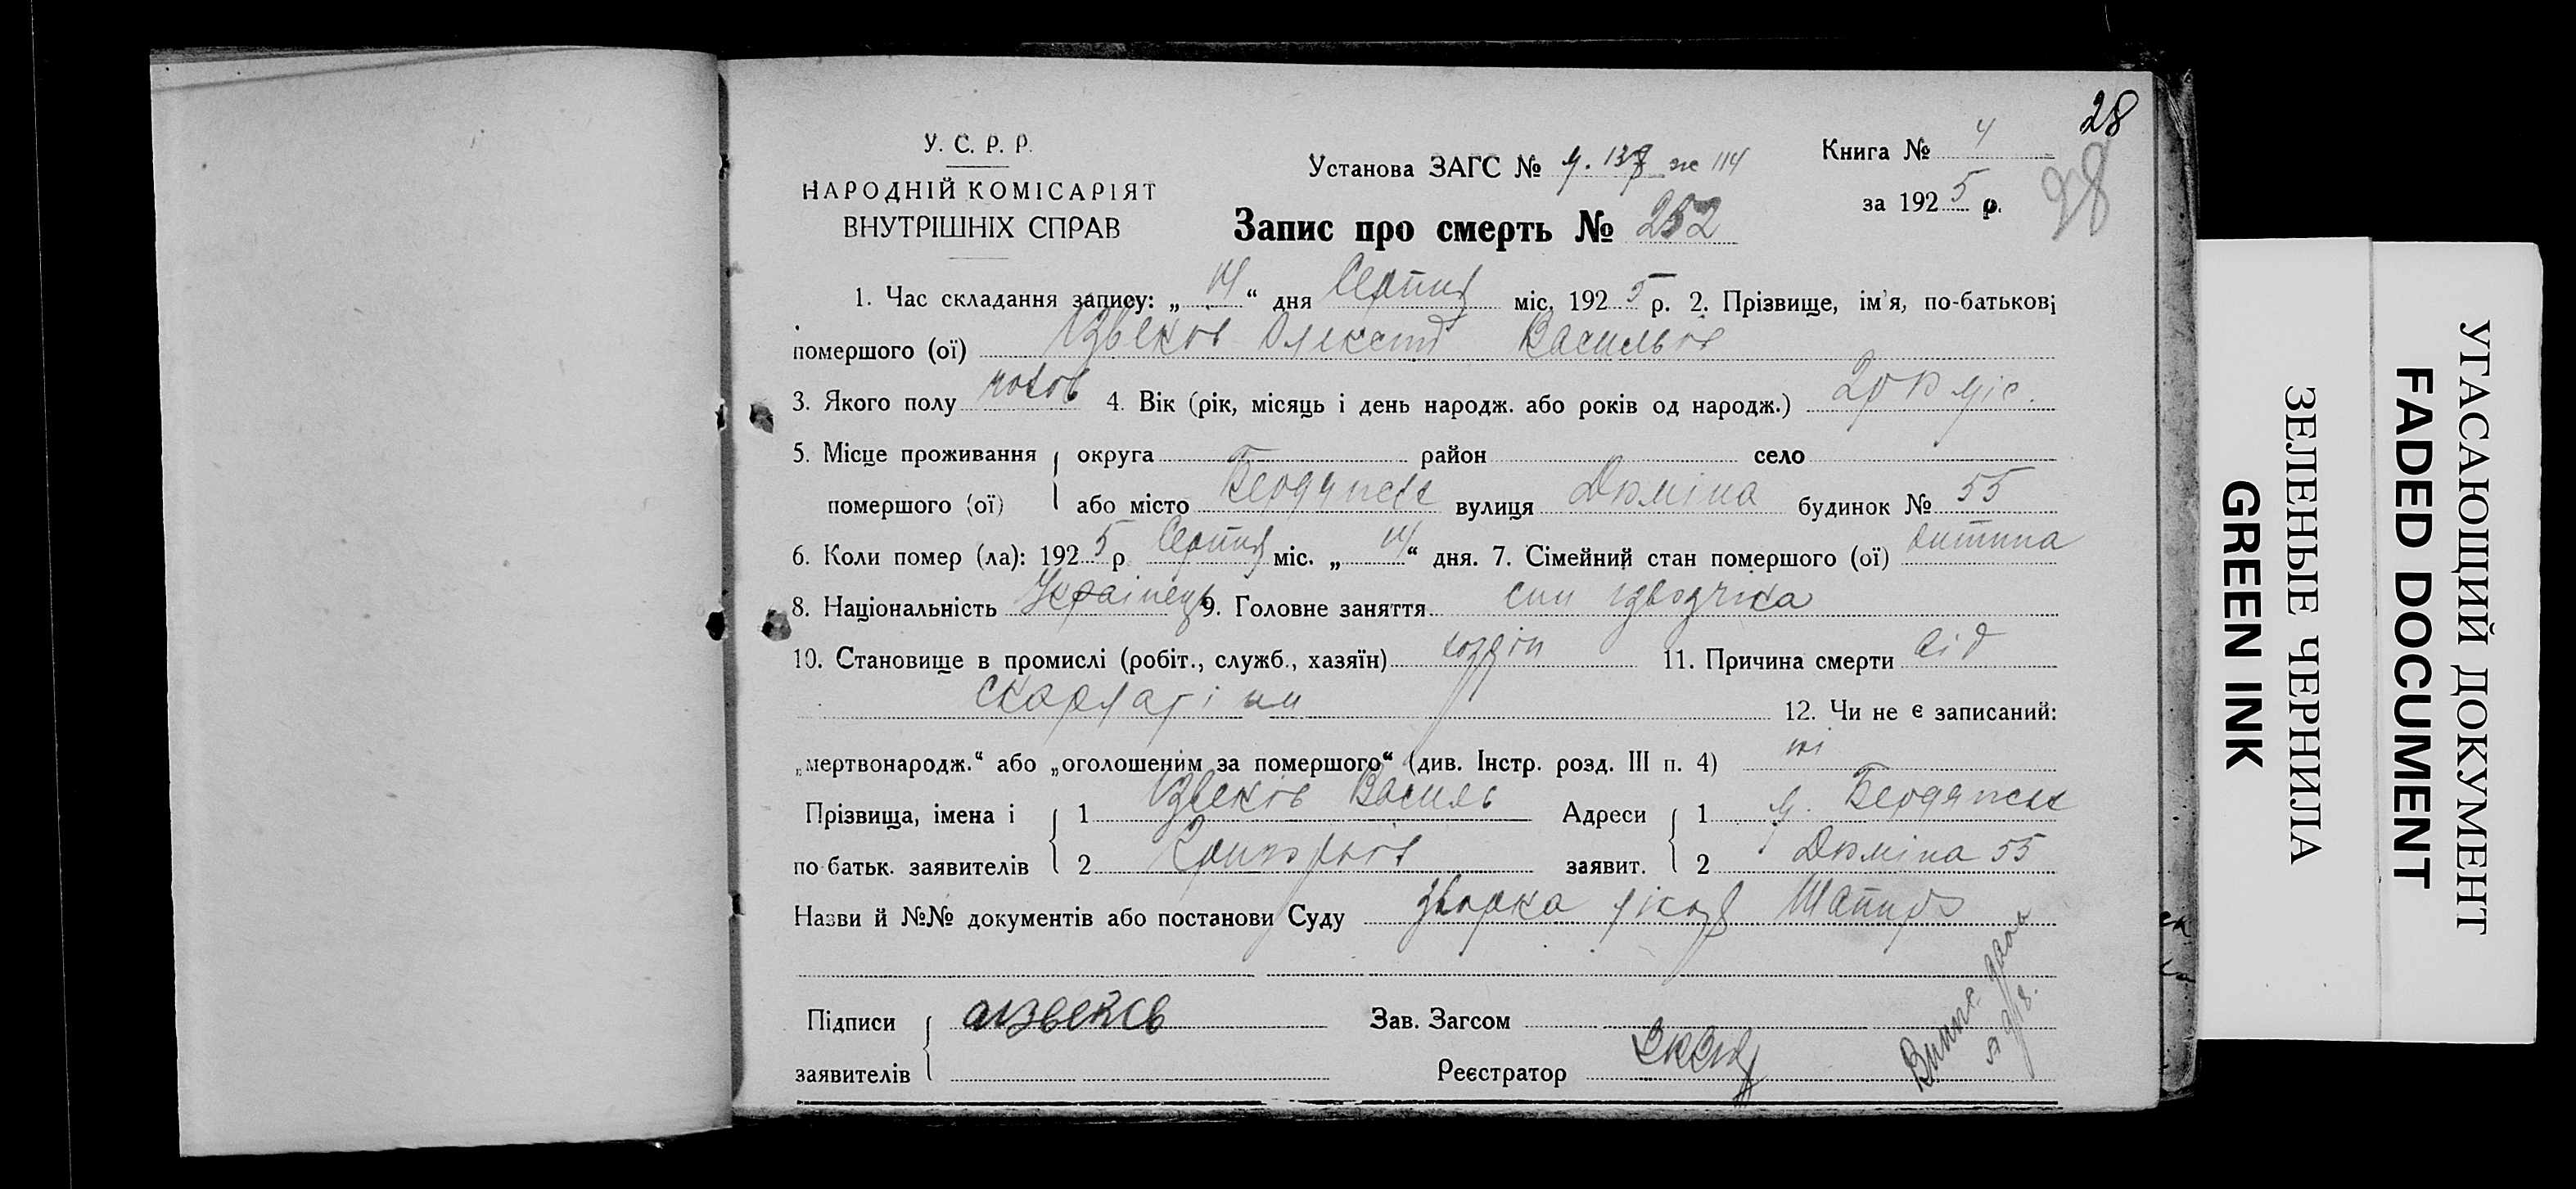 28
28
У. С. Р. Р.
НАРОДНІЙ КОМІСАРІЯТ
ВНУТРІШНІХ СПРАВ
Установа ЗАГС №
Книга № 4
за 1925 р.
Запис про смерть № 252
1. Час складання запису: „14“ дня Серпня міс. 1925 р. 2. Прізвище, ім'я, по-батькові
помершого (ої) Ізвеков Олександ Васильов
3. Якого полу чолов 4. Вік (рік, місяць і день народж. або років од народж.) міс.
5. Місце проживання округа район село
помершого (ої) або місто Бердянськ вулиця Дюміна будинок № 55
6. Коли помер (ла): 1925 р. Серпня міс. „14“ дня. 7. Сімейний стан помершого (ої) дитина
8. Національність Українець 9. Головне заняття син ізвозчіка
10. Становище в промислі (робіт., служб., хазяїн) хозяін 11. Причина смерти від
скарлатіни 12. Чи не є записаний:
„мертвонародж.“ або „оголошеним за помершого“ (див. Інстр. розд. III п. 4) ні
Прізвища, імена і 1 Ізвеков Василь Адреси 1 м. Бердянськ
по-батьк. заявителів 2 Григорьов заявит. 2 Дюміна 55
Назви й №№ документів або постанови Суду лікаря Шапиро
Підписи Извеков Зав. Загсом
заявителів Реєстратор
УГАСАЮЩИЙ ДОКУМЕНТ
FADED DOCUMENT
ЗЕЛЕНЫЕ ЧЕРНИЛА
GREEN INK